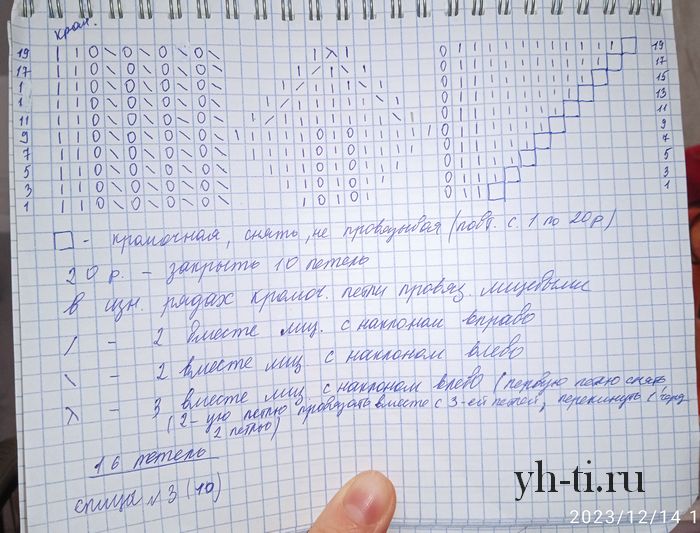 крам.
19 | | 0 \ 0 \ 0 \ 0 \ | λ | 0 | | | | | | | | | □ 19
17 | | 0 \ 0 \ 0 \ 0 \ 17
1 | | 0 \ 0 \ 0 \ 0 \ 15
1 | | 0 \ 0 \ 0 \ 0 \ 13
11 | | 0 \ 0 \ 0 \ 0 \ 11
9 | | 0 \ 0 \ 0 \ 0 \ 9
7 | | 0 \ 0 \ 0 \ 0 \ 7
5 | | 0 \ 0 \ 0 \ 0 \ 5
3 | | 0 \ 0 \ 0 \ 0 \ 3
1 | | 0 \ 0 \ 0 \ 0 \ | 0 | 0 | 0 | | □ 1
□ - кромочная, снять, не провязывая (повт. с 1 по 20 р)
20 р. - закрыть 10 петель
в изн. рядах кромоч. петли провяз. лицевыми
/ - 2 вместе лиц. с наклоном вправо
\ - 2 вместе лиц. с наклоном влево
λ - 3 вместе лиц с наклоном влево (первую петлю снять,
(2-ую петлю провязать вместе с 3-ей петлей, перекинуть (через
2 петлю)
16 петель
спица №3 (10)
yh-ti.ru
2023/12/14 1